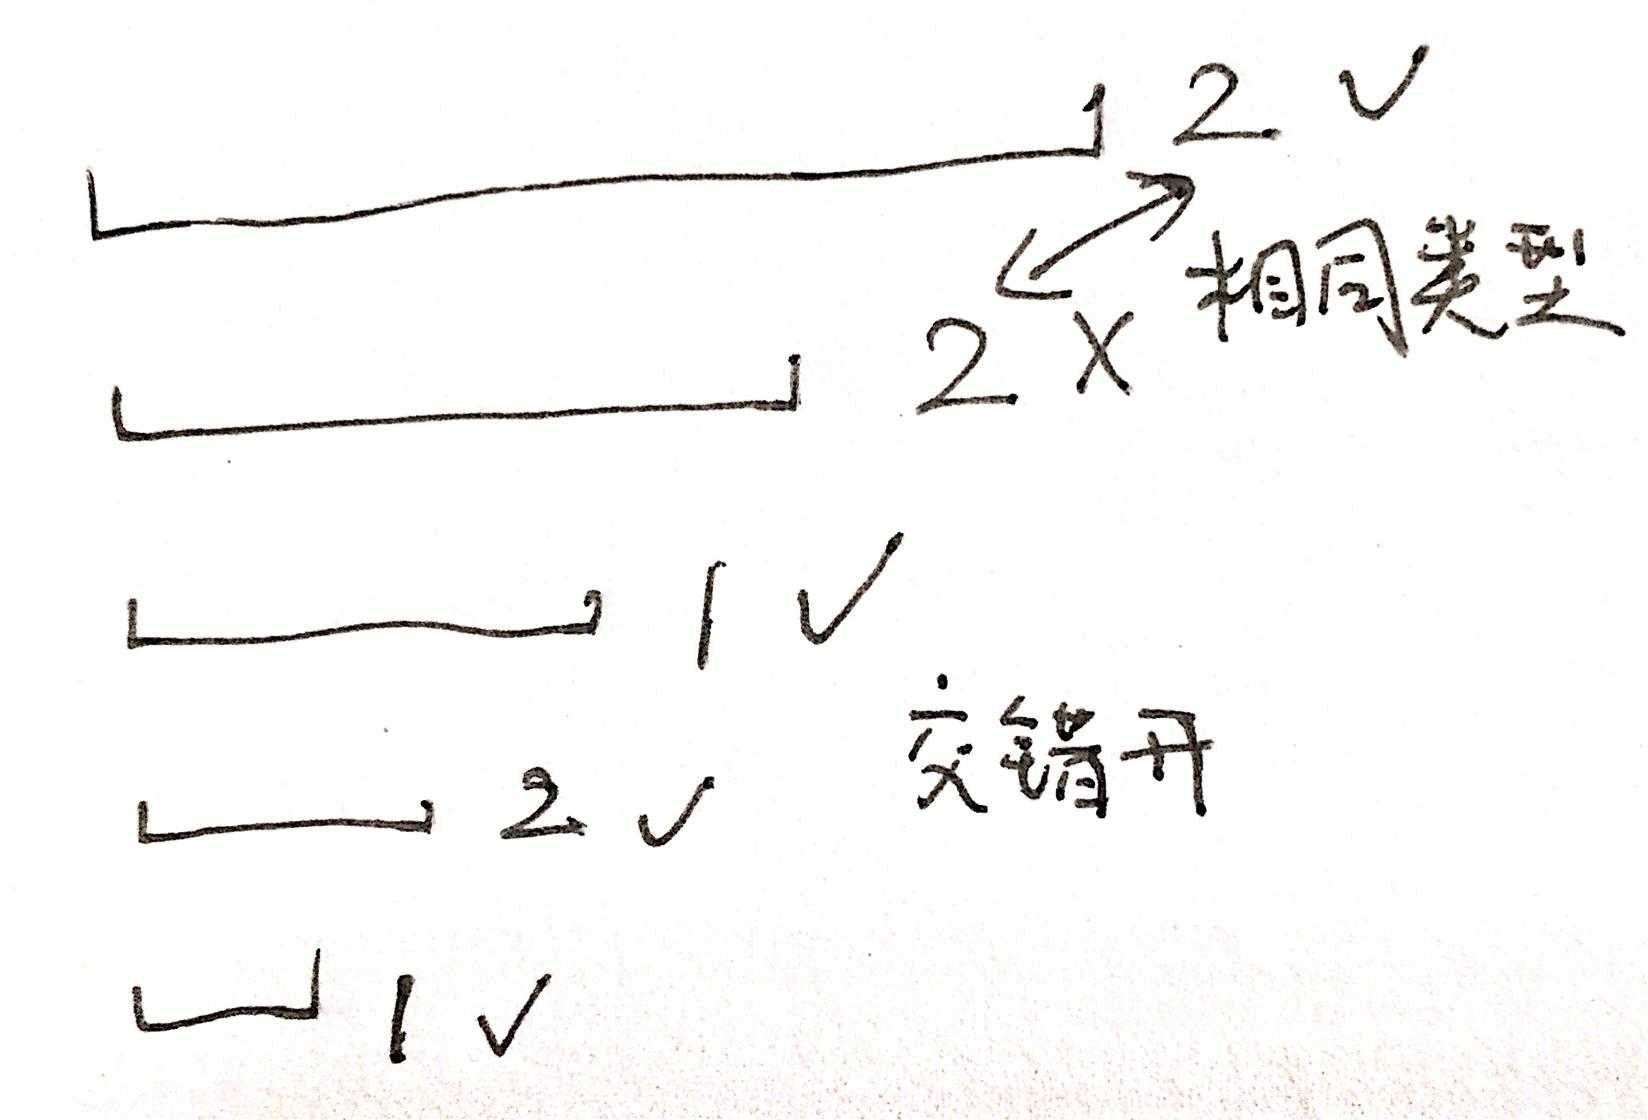 2 ✓
相同类型
2 ×
1 ✓
交错开
2 ✓
1 ✓